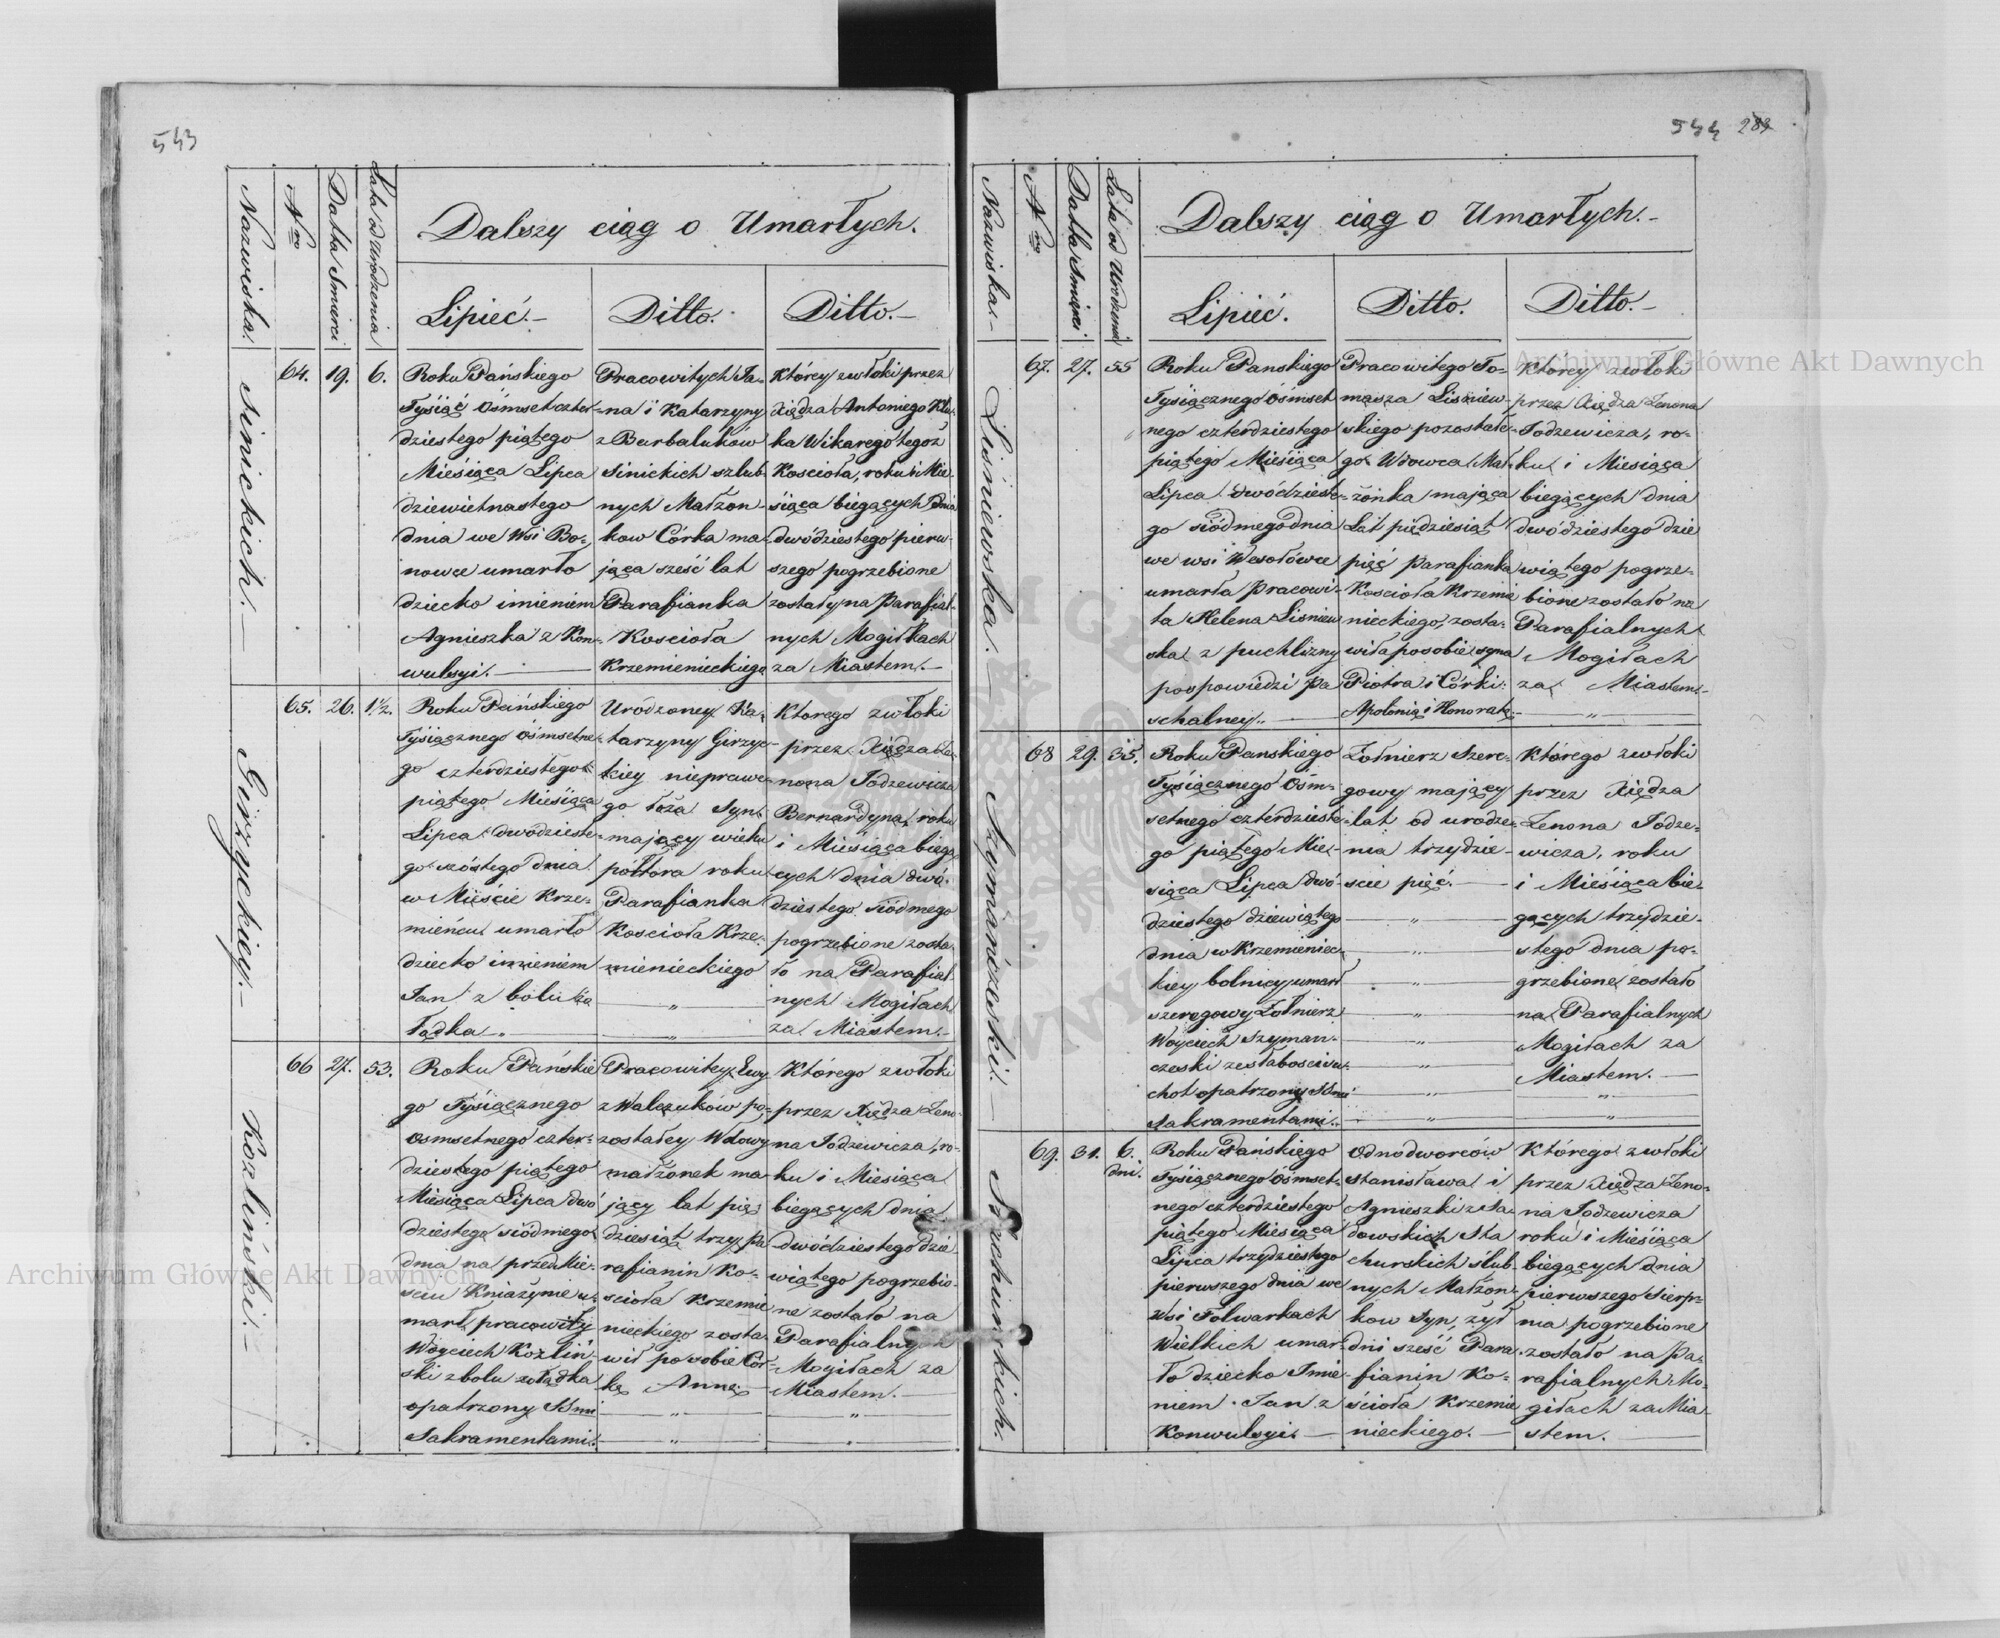 543
Nazwiska.
Nro
Datta Smierci
Lata od Urodzenia
Dalszy ciąg o Umarłych.
Lipieć.-
Ditto.
Ditto.-
Sinickich.-
64.
19.
6.
Roku Pańskiego
Tysiąć Ośmset czter-
dziestego piątego
Miesiąca Lipca
dziewietnastego
dnia we Wsi Bo-
nowce umarło
dziecko imieniem
Agnieszka z Kon-
wulsyi.
Pracowitych Ja-
na i Katarzyny
z Barbaluków
Sinickich szlub-
nych Małżon-
kow Córka ma-
jąca sześć lat
Parafianka
Koscioła
Krzemienieckiego
Którey zwłoki przez
Xiędza Antoniego
ka Wikarego tegoż
Koscioła, roku i Mie-
siąca biegących Dnia
dwódziestego pierw-
szego pogrzebione
zostały na Parafial-
nych Mogiłkach
za Miastem.-
Girzyckiey.-
65.
26.
1½.
Roku Pańskiego
Tysiącznego ośmsetne-
go czterdziestego
piątego Miesiąca
Lipca dwódzieste-
go szóstego dnia
w Mieście Krze-
mieńcu umarło
dziecko imieniem
Jan z bolu żo
łądka "
Urodzoney Ka-
tarzyny Girzyc-
kiey niepraw-
go łoża Syn
mający wieku
półtora roku
Parafianka
Kosciola Krze-
mienieckiego
"
"
Ktorego zwłoki
przez Xiędza Ze-
nona Jodzewicza
Bernardyna, roku
i Miesiąca biegą-
cych dnia dwó-
dziestego siódmego
pogrzebione zosta-
ło na Parafial-
nych Mogiłach
za Miastem.-
Kozliński.-
66
27.
53.
Roku Pańskie
go Tysiącznego
Osmsetnego czter-
dziestego piątego
Miesiąca Lipca dwó
dziestego siódmego
dnia na przedmie-
sciu Kniażynie u-
marł pracowity
Woyciech Kozliń-
ski z bolu żołądka
opatrzony SSmi
Sakramentami.
Pracowitey Ewy
z Walczuków po-
zostałey Wdowy
małżonek ma
jący lat pięć
dziesiąt trzy Pa
rafianin Ko-
scioła Krzemie
nieckiego zosta-
wił po sobie Cór-
kę Annę.
"
"
Którego zwłoki
przez Xiędza Zeno-
na Jodzewicza, ro-
ku i Miesiąca
biegących dnia
dwódziestego dzie
wiątego pogrzebio-
ne zostało na
Parafialnych
Mogiłach za
Miastem.
"
"
544
289
Nazwiska.-
Nro
Datta Smierci
Lata od Urodzenia
Dalszy ciąg o Umarłych.-
Lipieć.
Ditto.
Ditto.-
Lisniewska.
67.
27.
55
Roku Panskiego
Tysiącznego Ośmset
nego czterdziestego
piątego Miesiąca
Lipca dwódzieste-
go siódmego dnia
we wsi Wesołówce
umarła Pracowi-
ta Helena Lisniew
ska z puchlizny
po spowiedzi Pa
schalney.
Pracowitego To-
masza Lisniew-
skiego pozostałe-
go Wdowca Mał-
żonka mająca
Lat piędziesiąt
pięć Parafianka
Kosciola Krzemie
nieckiego, zosta-
wiła po sobie syna
Piotra i Córki:
Apolonią i Honoratę.
Którey zwłoki
przez Xiędza Zenona
Jodzewicza, ro-
ku i Miesiąca
biegących dnia
dwódziestego dzie
wiątego pogrze-
bione zostało na
Parafialnych
Mogiłach
za Miastem.-
"
Szymańczeski.-
68
29.
35.
Roku Panskiego
Tysiącznego Ośm-
setnego czterdzieste-
go piątego Mie-
siąca Lipca dwó-
dziestego dziewiątego
dnia w Krzemieniec-
kiey bolnicy umarł
szeregowy Żołnierz
Woyciech Szyman-
czeski ze słabosci su-
chot opatrzony SSmi
Sakramentami.
Żołnierz Szere-
gowy mający
lat od urodze-
nia trzydzie-
scie pięć.
"
"
"
"
"
"
"
"
Którego zwłoki
przez Xiędza
Zenona Jodze-
wicza, roku
i Miesiąca bie-
gących trzydzie-
stego dnia po-
grzebione zostało
na Parafialnych
Mogiłach za
Miastem.
"
"
Stachurskich.
69.
31.
6.
dni.
Roku Pańskiego
Tysiącznego Ośmset-
nego czterdziestego
piątego Miesiąca
Lipca trzydziestego
pierwszego dnia we
Wsi Folwarkach
Wielkich umar-
ło dziecko Jmie
niem Jan z
Konwulsyi.
Odnodworców
Stanisława i
Agnieszki z Sa-
dowskich Sta
churskich szlub-
nych Małżon-
kow Syn, żył
dni sześć Para-
fianin Ko-
ścioła Krzemie
nieckiego.
Którego zwłoki
przez Xiędza Zeno-
na Jodzewicza
roku i Miesiąca
biegących dnia
pierwszego Sierp-
nia pogrzebione
zostało na Pa-
rafialnych Mo-
giłach za Mia-
stem.
Archiwum Główne Akt Dawnych
Archiwum Główne Akt Dawnych